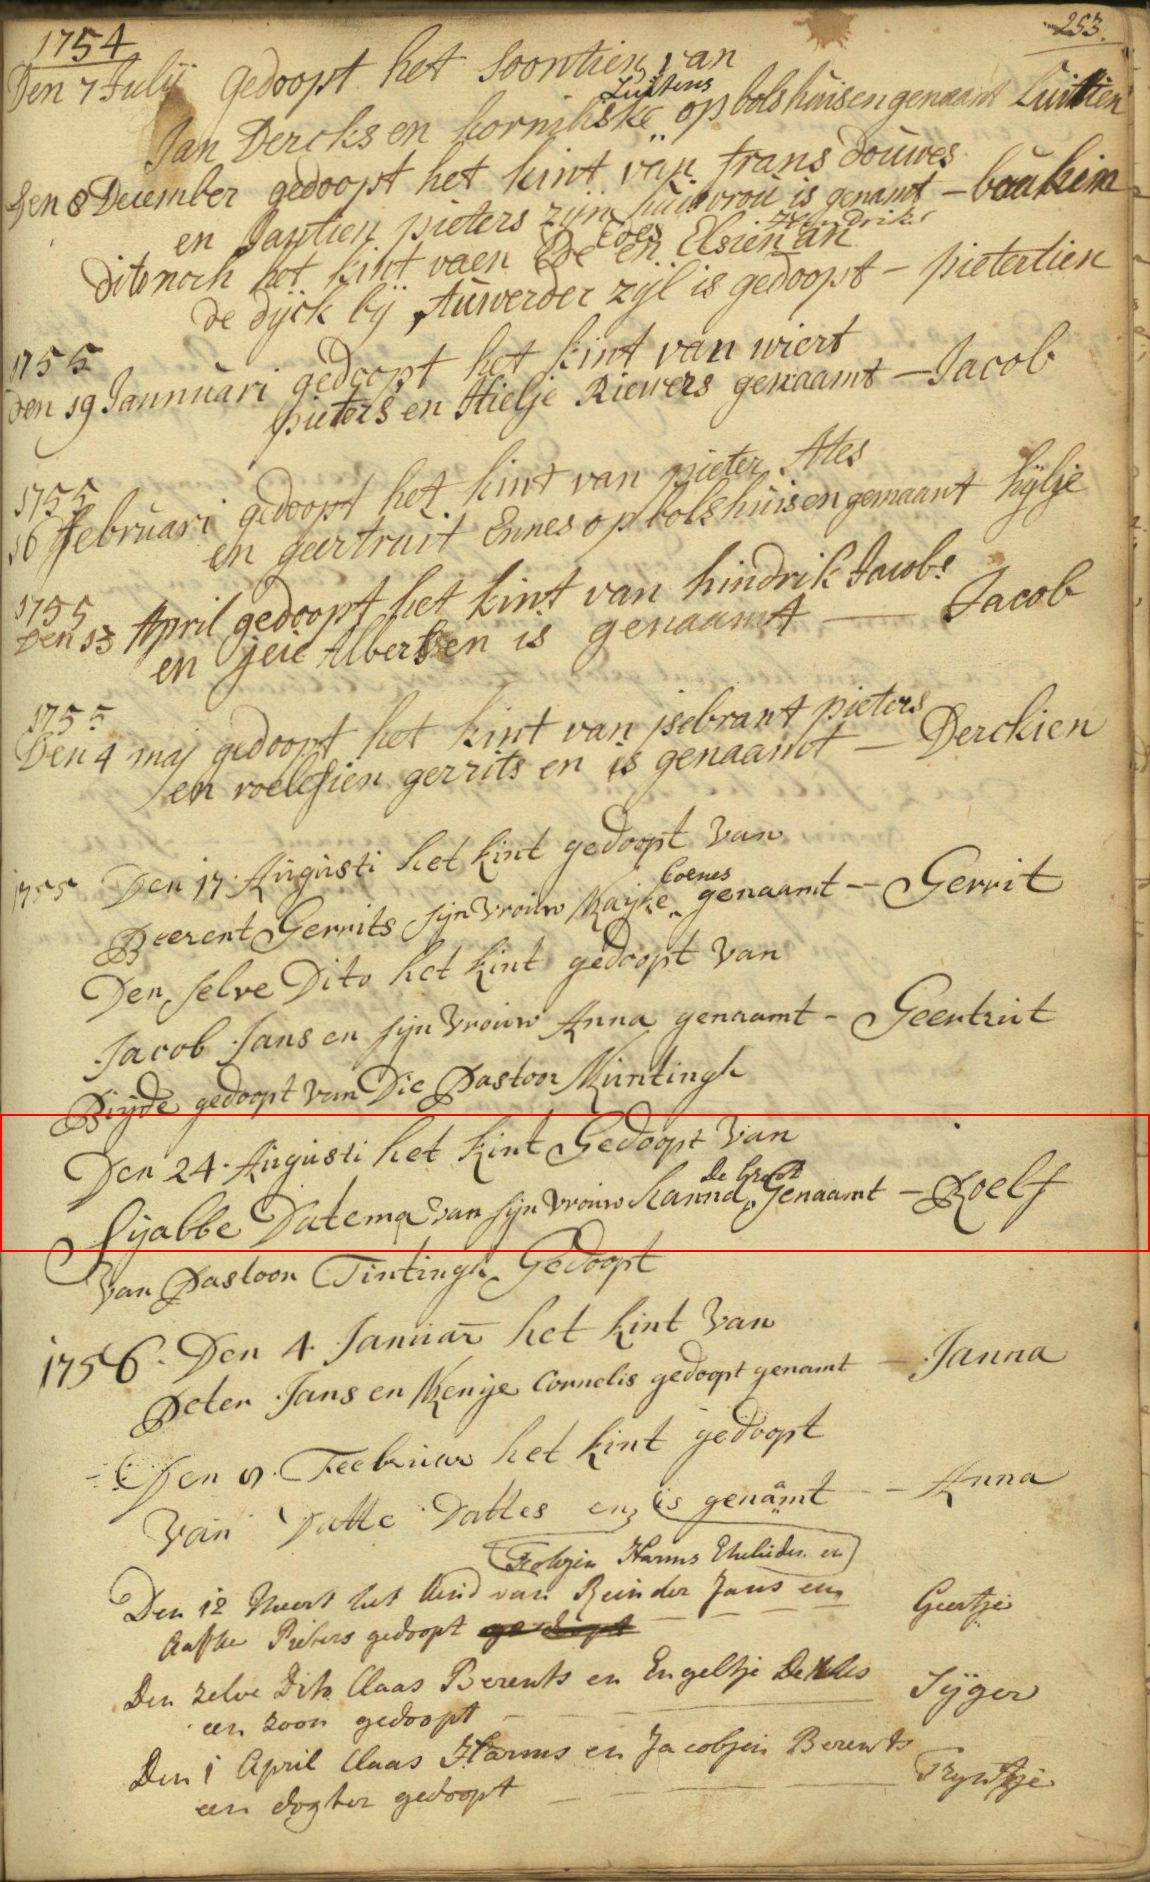 253.
1754
Den 7 Julij gedoopt het soontien van
Luitiens
Jan Dercks en kornilske op bolshuisen genaamt Luitien
Den 8 December gedoopt het kint van frans douwes
en Jantien pieters zijn huisvrou is genamt - boukien
Edes Hendriks
dito noch het kint vaen Ede en Elsien an
de dijck bij Auwerder zijl is gedoopt - pietertien
1755
Den 19 Jannuari gedoopt het kint van wiert
pieters en Hielje Riewers genaamt - Jacob
1755
16 februari gedoopt het kint van pieter Ates
en geertruit Ennes op bolshuisen genaamt hijlje
1755
Den 13 April gedoopt het kint van hindrik Jacobs
en jeie Alberts en is genaamt - Jacob
1755
Den 4 maj gedoopt het kint van jsebrant pieters
en roelefien gerrits en is genaamt - Derckien
1755 Den 17 Augusti het kint gedoopt van
Coenes
Beerent Gerrits sijn vrouw Maijke genaamt - Gerrit
Den selve Dito het kint gedoopt van
Jacob Jans en sijn vrouw Anna genaamt - Geertruit
Beijde gedoopt van Die Pastoor Muntingh
Den 24 Augusti het kint Gedoopt van
de Groot
Sijabbe Datema van sijn vrouw Hanna Genaamt - Roelf
van Pastoor Tintingh Gedoopt
1756. Den 4 Januar het kint van
Peter Jans en Menje Cornelis gedoopt genamt - Janna
Den 8. Feebruar het kint gedoopt
van Datte Dattes en is genamt - Anna
Harms Eheluden en
Den 12 Meert het kind van Reinder Jans en
Aafke Pieters gedoopt Geertje
Den zelve Dito Claas Berents en Engeltje
een zoon gedoopt - Sijger
Den 1 April Claas Harms en Jacobjen Berents
een dogter gedoopt - Tryntje